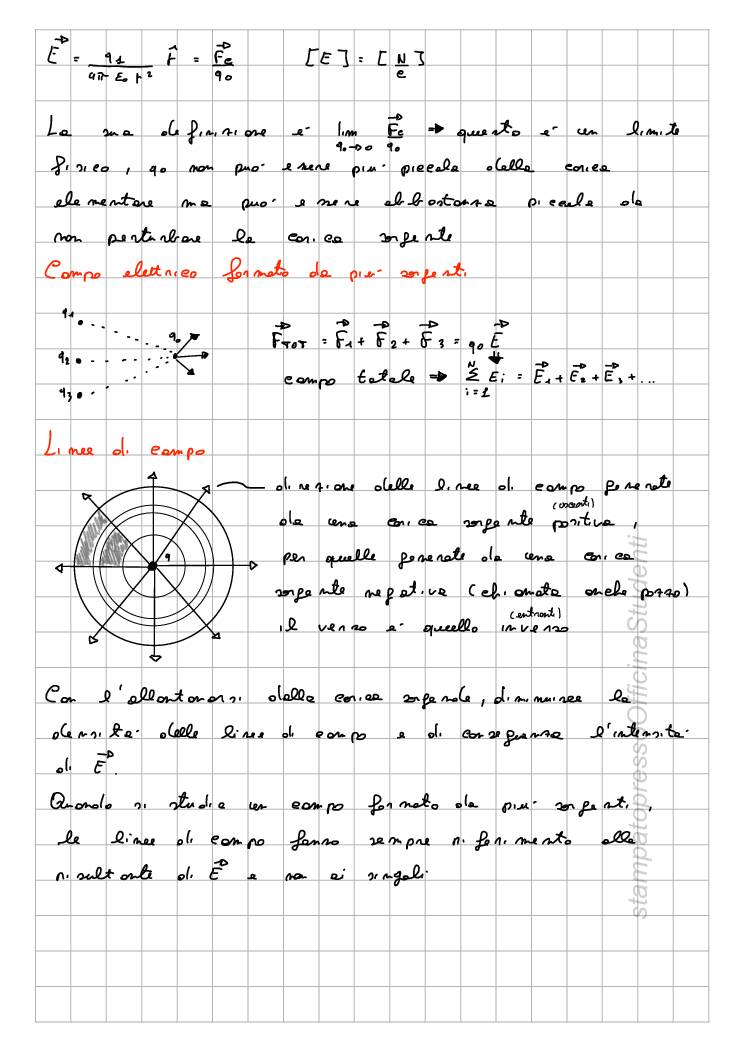 E⃗ = q1 / 4π ε0 r² r̂ = F⃗e / q0 [E] = [N/c]
La sua definizione e' lim q0→0 F⃗e/q0 → questo e' un limite
fisico, q0 non puo' essere piu' piccola della carica
elementare ma puo' essere abbastanza piccola da
non perturbare la carica sorgente
Campo elettrico formato da piu' sorgenti
q1
q0
q2
q3
F⃗TOT = F⃗1 + F⃗2 + F⃗3 = q0 E⃗
campo totale → N Σ i=1 Ei = E⃗1 + E⃗2 + E⃗3 + ...
Linee di campo
q
direzione delle linee di campo generate
da una carica sorgente positiva (uscenti),
per quelle generate da una carica
sorgente negativa (chiamata anche pozzo)
il verso e' quello inverso (entranti)
Con l'allontanarsi dalla carica sorgente, diminuisce la
densita' delle linee di campo e di conseguenza l'intensita'
di E⃗.
Quando si studia un campo formato da piu' sorgenti,
le linee di campo fanno sempre riferimento alla
risultante di E⃗ e non ai singoli
stampatopressoOfficinaStudenti